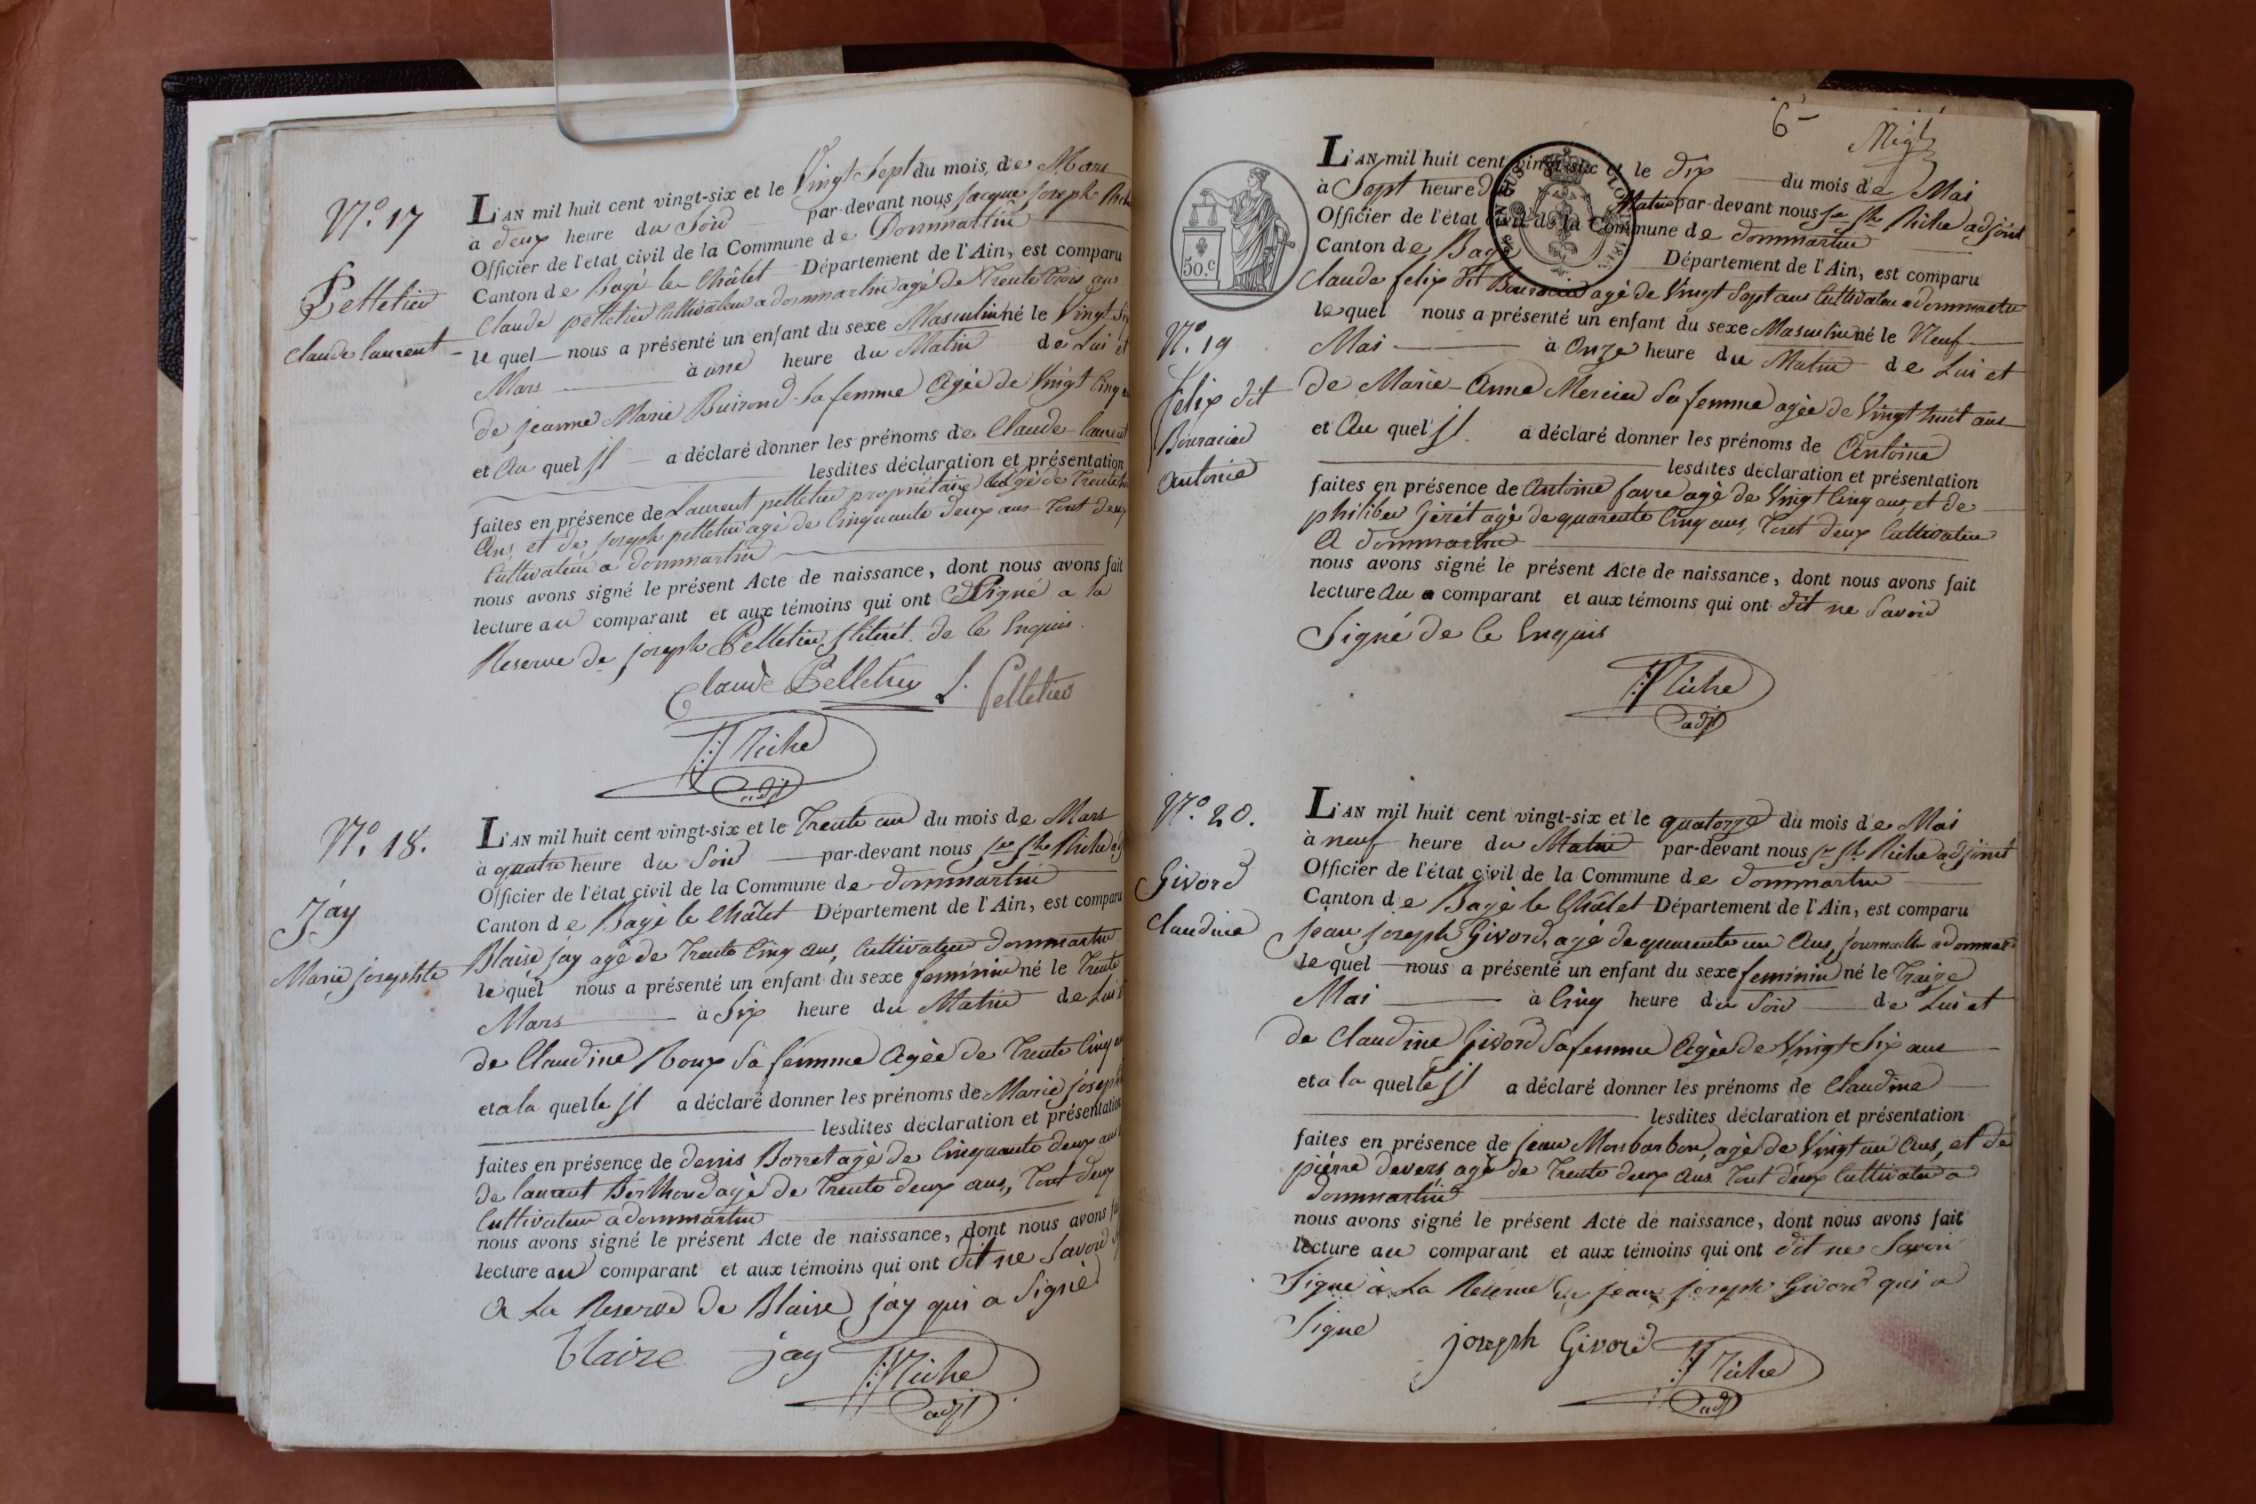 N.o 17
Pelletier
Claude laurent
L'AN mil huit cent vingt-six et le Vingt Sept du mois de Mars
à deux heure du Soir par-devant nous jacque joseph
Officier de l'état civil de la Commune de Dommartin
Canton de Bagé le Châtel Département de l'Ain, est comparu
Claude pelletier Cultivateur a dommartin agé de Trente trois ans
le quel nous a présenté un enfant du sexe Masculin né le Vingt Six
Mars à une heure du Matin de Lui et
de jeanne Marie Buirond Sa femme Agée de Vingt Cinq
et Au quel jl a déclaré donner les prénoms de Claude laurent
lesdites déclaration et présentation
faites en présence de Laurent pelletier propriétaire agé de
Ans, et de joseph pelletier agé de Cinquante deux ans Tout deux
Cultivateur a dommartin
nous avons signé le présent Acte de naissance, dont nous avons fait
lecture au comparant et aux témoins qui ont Signé a la
Reserve de joseph Pelletier de Ce Enquis.
Claude Pelletier L. Pelletier
Riche
adjt
N.o 18.
Jay
Marie josephte
L'AN mil huit cent vingt-six et le Trente un du mois de Mars
à quatre heure du Soir par-devant nous Jque Jph Riche adj
Officier de l'état civil de la Commune de dommartin
Canton de Bagé le Châtel Département de l'Ain, est comparu
Blaise jay agé de Trente Cinq ans, Cultivateur dommartin
le quel nous a présenté un enfant du sexe feminin né le Trente
Mars à Six heure du Matin de Lui
de Claudine Roux Sa femme Agée de Trente Cinq
et a la quelle jl a déclaré donner les prénoms de Marie joseph
lesdites déclaration et présentation
faites en présence de denis Borret agé de Cinquante deux ans
de laurent Berthoud agé de Trente deux ans, Tout deux
Cultivateur a dommartin
nous avons signé le présent Acte de naissance, dont nous avons fait
lecture au comparant et aux témoins qui ont dit ne Savoir
A La Reserve de Blaise jay qui a Signé
Blaise jay
Riche
adjt
6
50. C
L'AN mil huit cent vingt-six et le dix du mois de Mai
à Sept heure du Matin par-devant nous Jque Jph Riche adjoint
Officier de l'état civil de la Commune de dommartin
Canton de Bagé Département de l'Ain, est comparu
Claude felix dit Bouracier agé de Vingt Sept ans Cultivateur a dommartin
le quel nous a présenté un enfant du sexe Masculin né le Neuf
Mai à Onze heure du Matin de Lui et
de Marie-Anne Mercier Sa femme agée de Vingt huit ans
et Au quel jl a déclaré donner les prénoms de Antoine
lesdites déclaration et présentation
faites en présence de Antoine favre agé de Vingt Cinq ans, et de
philiber Gérét agé de quarente Cinq ans, Tout deux Cultivateur
A dommartin
nous avons signé le présent Acte de naissance, dont nous avons fait
lecture Au comparant et aux témoins qui ont dit ne Savoir
Signé de Ce Enquis
Riche
adjt
N.o 19
felix dit
Bouracier
Antoine
N.o 20.
Givord
Claudine
L'AN mil huit cent vingt-six et le quatorze du mois de Mai
à neuf heure du Matin par-devant nous Jque Jph Riche adjoint
Officier de l'état civil de la Commune de dommartin
Canton de Bagé le Châtel Département de l'Ain, est comparu
jean joseph Givord, agé de quarente un Ans, journalier a dommart
le quel nous a présenté un enfant du sexe feminin né le Traize
Mai à Cinq heure du Soir de Lui et
de Claudine Givord Sa femme Agée de Vingt Six ans
et a la quelle jl a déclaré donner les prénoms de Claudine
lesdites déclaration et présentation
faites en présence de jean Monbarbon, agé de Vingt un Ans, et de
piérre devers agé de Trente deux Ans Tout deux Cultivateur a
dommartin
nous avons signé le présent Acte de naissance, dont nous avons fait
lecture au comparant et aux témoins qui ont dit ne Savoir
Signe à La Reserve de jean joseph Givord qui a
Signe
joseph Givord
Riche
adjt